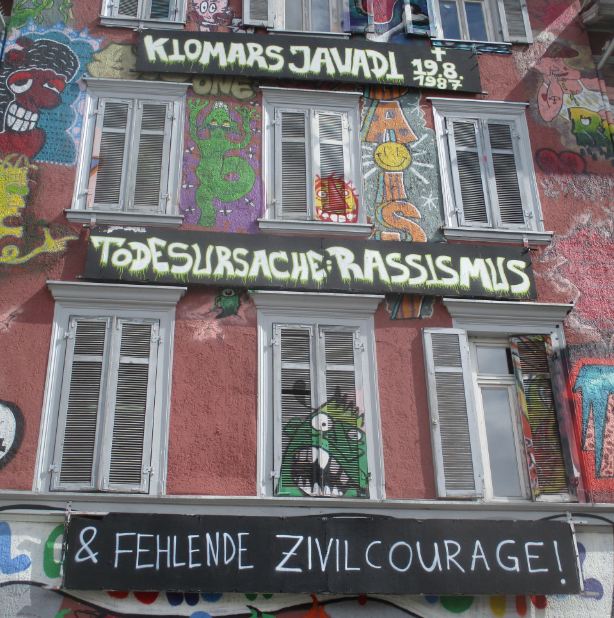 KIOMARS JAVADI
† 19.8.
1987
ONE
TODESURSACHE: RASSISMUS
& FEHLENDE ZIVILCOURAGE!